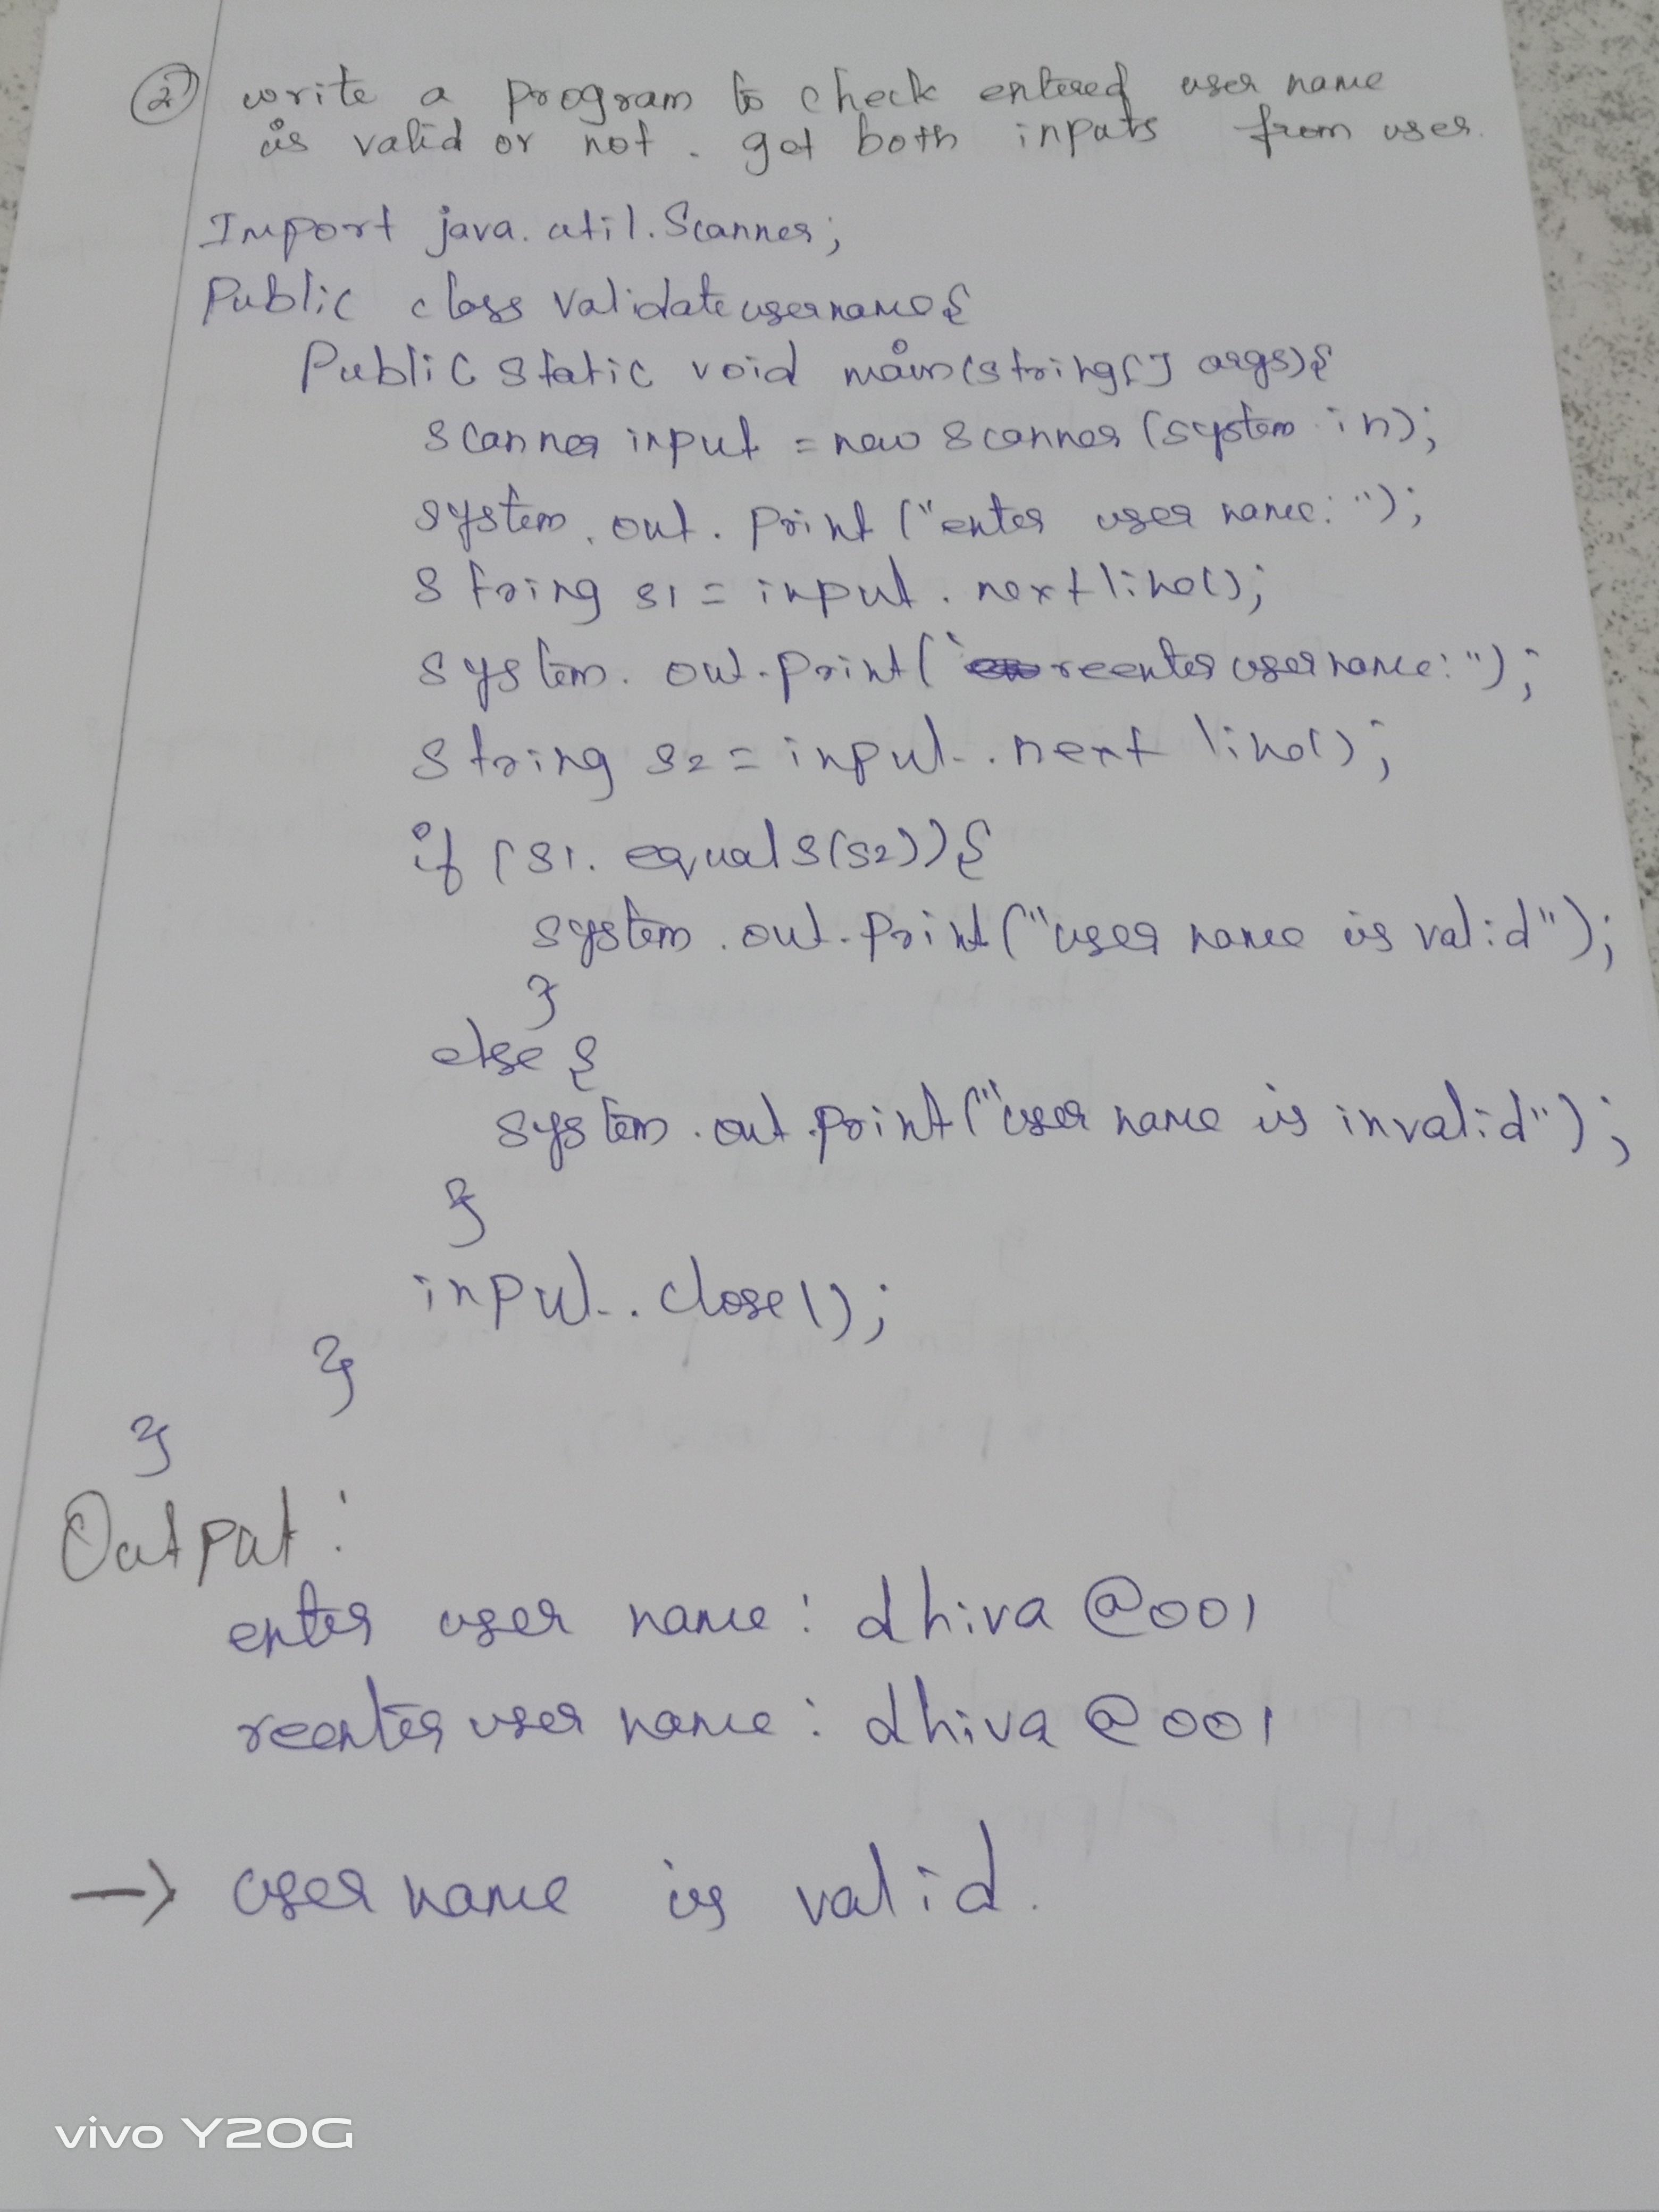 2 write a program to check entered user name
is valid or not. get both inputs from user.
Import java.util.Scanner;
Public class validateusername{
Public static void main(string[] args){
scanner input = new scanner (system.in);
system.out.print("enter user name:");
string s1 = input.nextline();
system.out.print("reenter username:");
string s2 = input.next line();
if (s1.equals(s2)){
system.out.print("user name is valid");
}
else {
system.out.print("user name is invalid");
}
input.close();
}
}
Output:
enter user name: dhiva@001
reenter user name: dhiva@001
→ user name is valid.
vivo Y20G